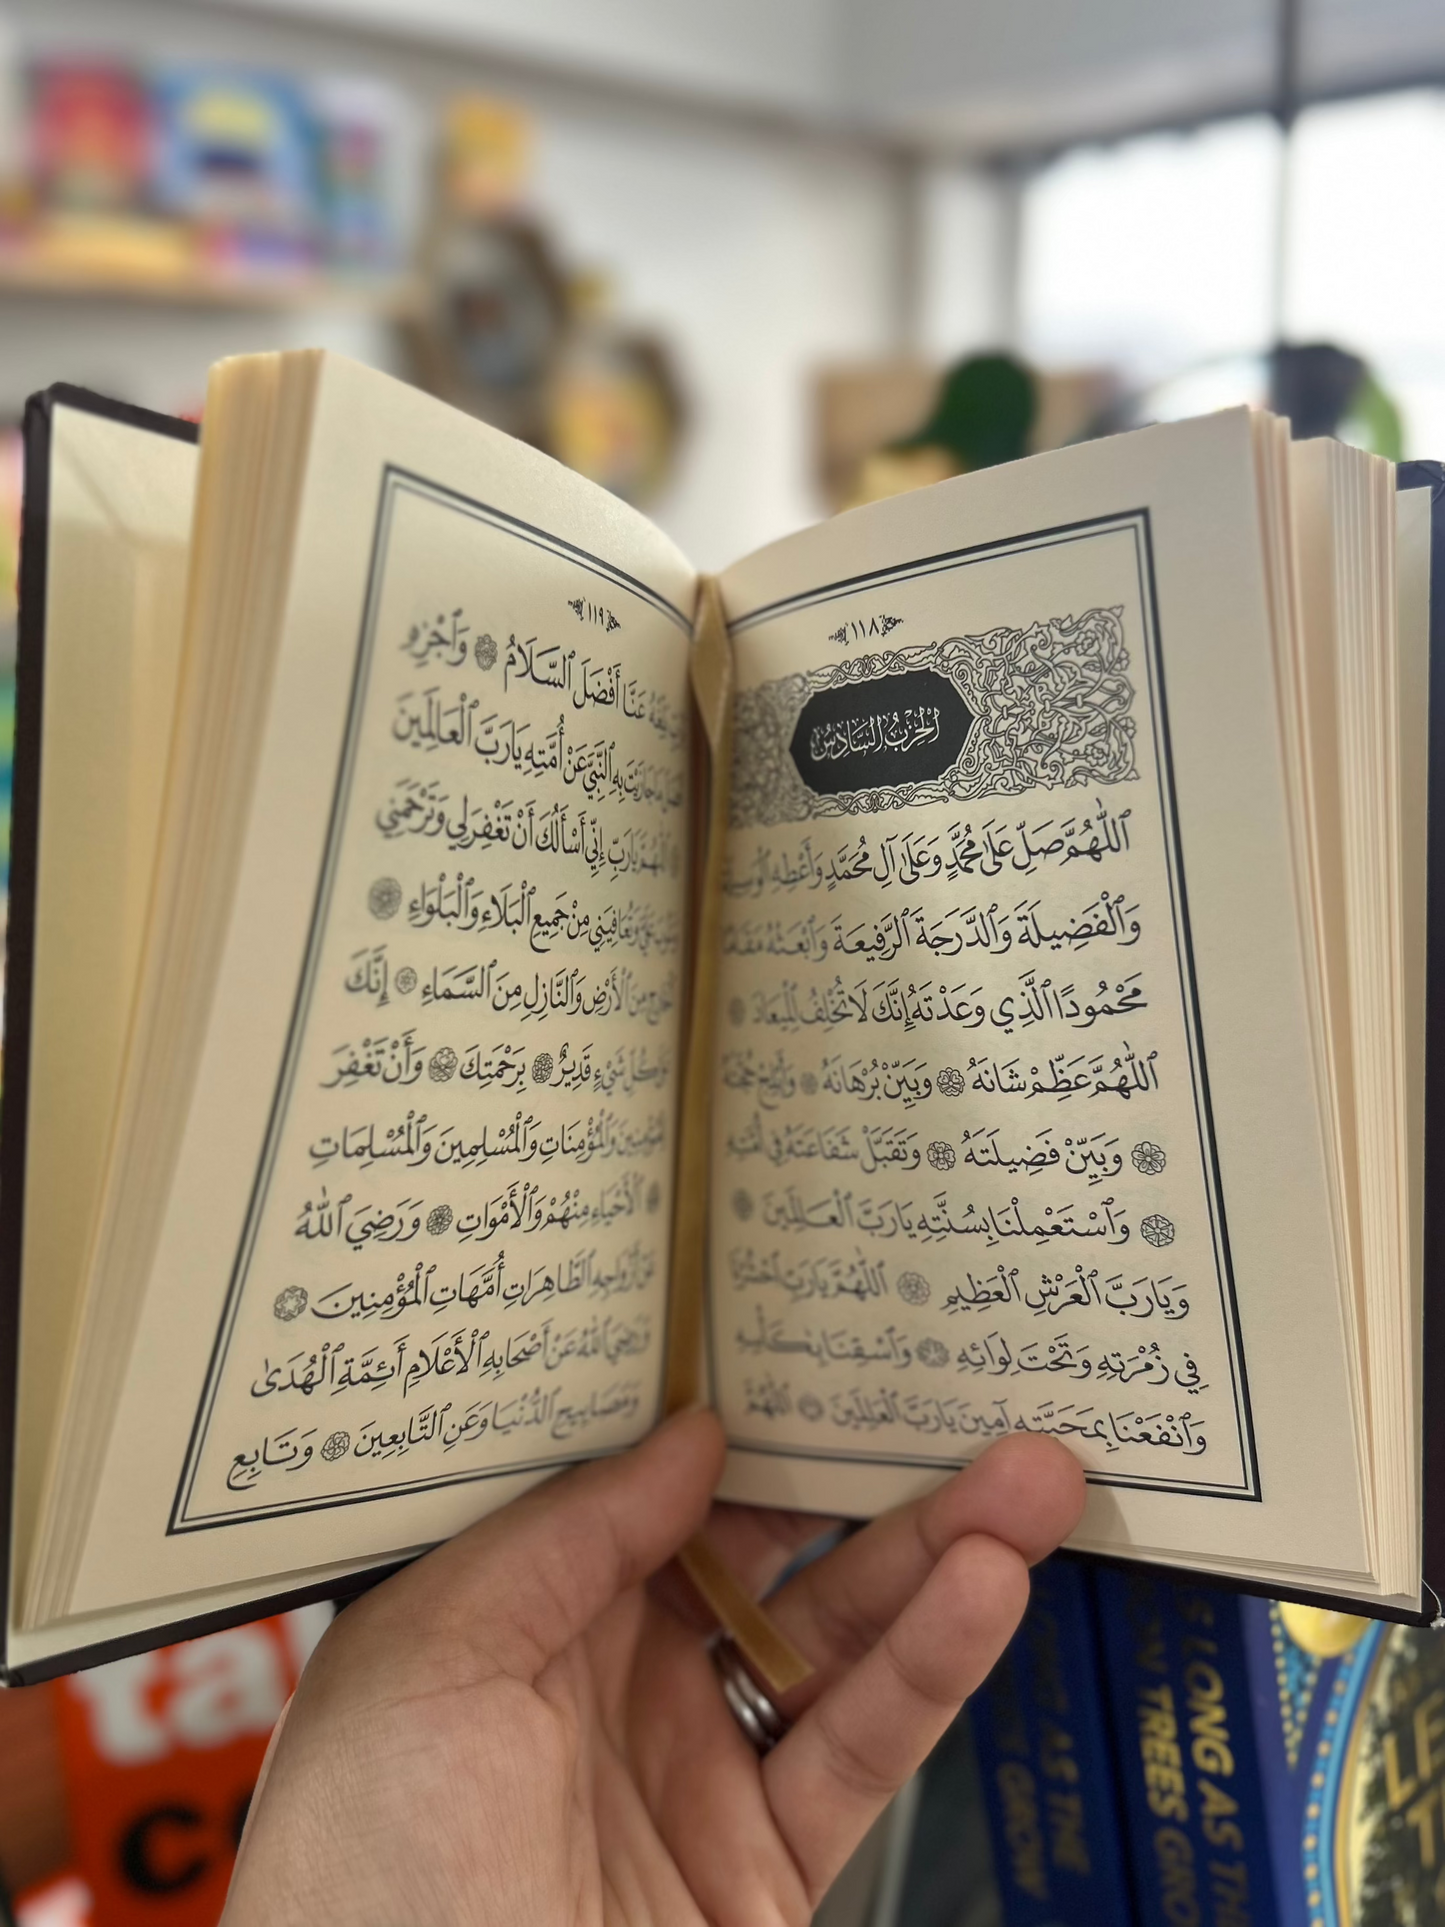 ١١٨
الْحِزْبُ السَّادِسُ
اَللّٰهُمَّ صَلِّ عَلَىٰ مُحَمَّدٍ وَعَلَىٰ آلِ مُحَمَّدٍ وَأَعْطِهِ الْوَسِيلَةَ
وَٱلْفَضِيلَةَ وَٱلدَّرَجَةَ ٱلرَّفِيعَةَ وَٱبْعَثْهُ مَقَامًا
مَحْمُودًا ٱلَّذِي وَعَدْتَهُ إِنَّكَ لَا تُخْلِفُ ٱلْمِيعَادَ
ٱللّٰهُمَّ عَظِّمْ شَانَهُ وَبَيِّنْ بُرْهَانَهُ وَأَبْلِجْ حُجَّتَهُ
وَبَيِّنْ فَضِيلَتَهُ وَتَقَبَّلْ شَفَاعَتَهُ فِي أُمَّتِهِ
وَٱسْتَعْمِلْنَا بِسُنَّتِهِ يَارَبَّ ٱلْعَالَمِينَ
وَيَارَبَّ ٱلْعَرْشِ ٱلْعَظِيمِ ٱللّٰهُمَّ يَارَبِّ ٱحْشُرْنَا
فِي زُمْرَتِهِ وَتَحْتَ لِوَائِهِ وَٱسْقِنَا بِكَأْسِهِ
وَٱنْفَعْنَا بِمَحَبَّتِهِ آمِينَ يَارَبَّ ٱلْعَالَمِينَ ٱللّٰهُمَّ
١١٩
عَنَّا أَفْضَلَ ٱلسَّلَامُ وَٱجْزِهِ
بِهِ ٱلنَّبِيَّ عَنْ أُمَّتِهِ يَارَبَّ ٱلْعَالَمِينَ
ٱللّٰهُمَّ يَارَبِّ إِنِّي أَسْأَلُكَ أَنْ تَغْفِرَ لِي وَتَرْحَمَنِي
وَتَتُوبَ عَلَيَّ وَتُعَافِيَنِي مِنْ جَمِيعِ ٱلْبَلَاءِ وَٱلْبَلْوَاءِ
ٱلْخَارِجِ مِنَ ٱلْأَرْضِ وَٱلنَّازِلِ مِنَ ٱلسَّمَاءِ إِنَّكَ
كُلِّ شَيْءٍ قَدِيرٌ بِرَحْمَتِكَ وَأَنْ تَغْفِرَ
لِلْمُؤْمِنِينَ وَٱلْمُؤْمِنَاتِ وَٱلْمُسْلِمِينَ وَٱلْمُسْلِمَاتِ
ٱلْأَحْيَاءِ مِنْهُمْ وَٱلْأَمْوَاتِ وَرَضِيَ ٱللّٰهُ
عَنْ أَزْوَاجِهِ ٱلطَّاهِرَاتِ أُمَّهَاتِ ٱلْمُؤْمِنِينَ
وَرَضِيَ ٱللّٰهُ عَنْ أَصْحَابِهِ ٱلْأَعْلَامِ أَئِمَّةِ ٱلْهُدَىٰ
وَمَصَابِيحِ ٱلدُّنْيَا وَعَنِ ٱلتَّابِعِينَ وَتَابِعِ
AS LONG AS THE
LEMON TREES GROW